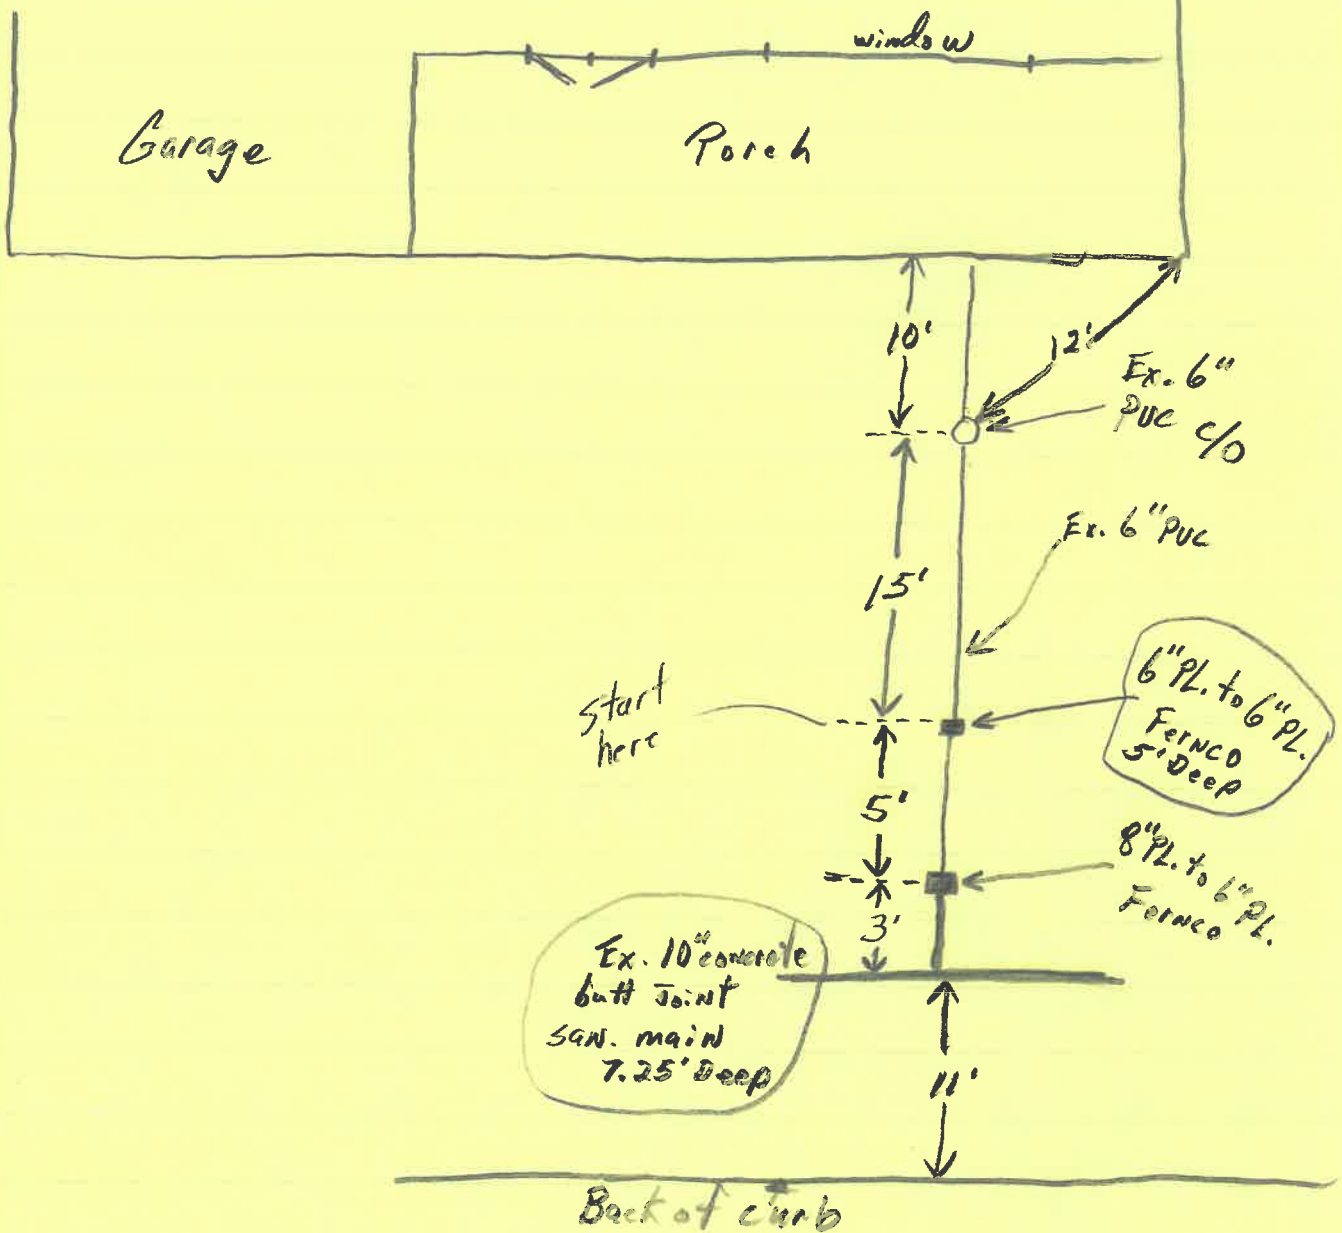 window
Garage
Porch
10'
12'
Ex. 6"
PVC C/O
15'
Ex. 6" PVC
Start
here
6" PL. to 6" PL.
Fernco
5' Deep
5'
8" PL. to 6" PL.
Fernco
3'
Ex. 10" concrete
butt Joint
San. main
7.25' Deep
11'
Back of curb